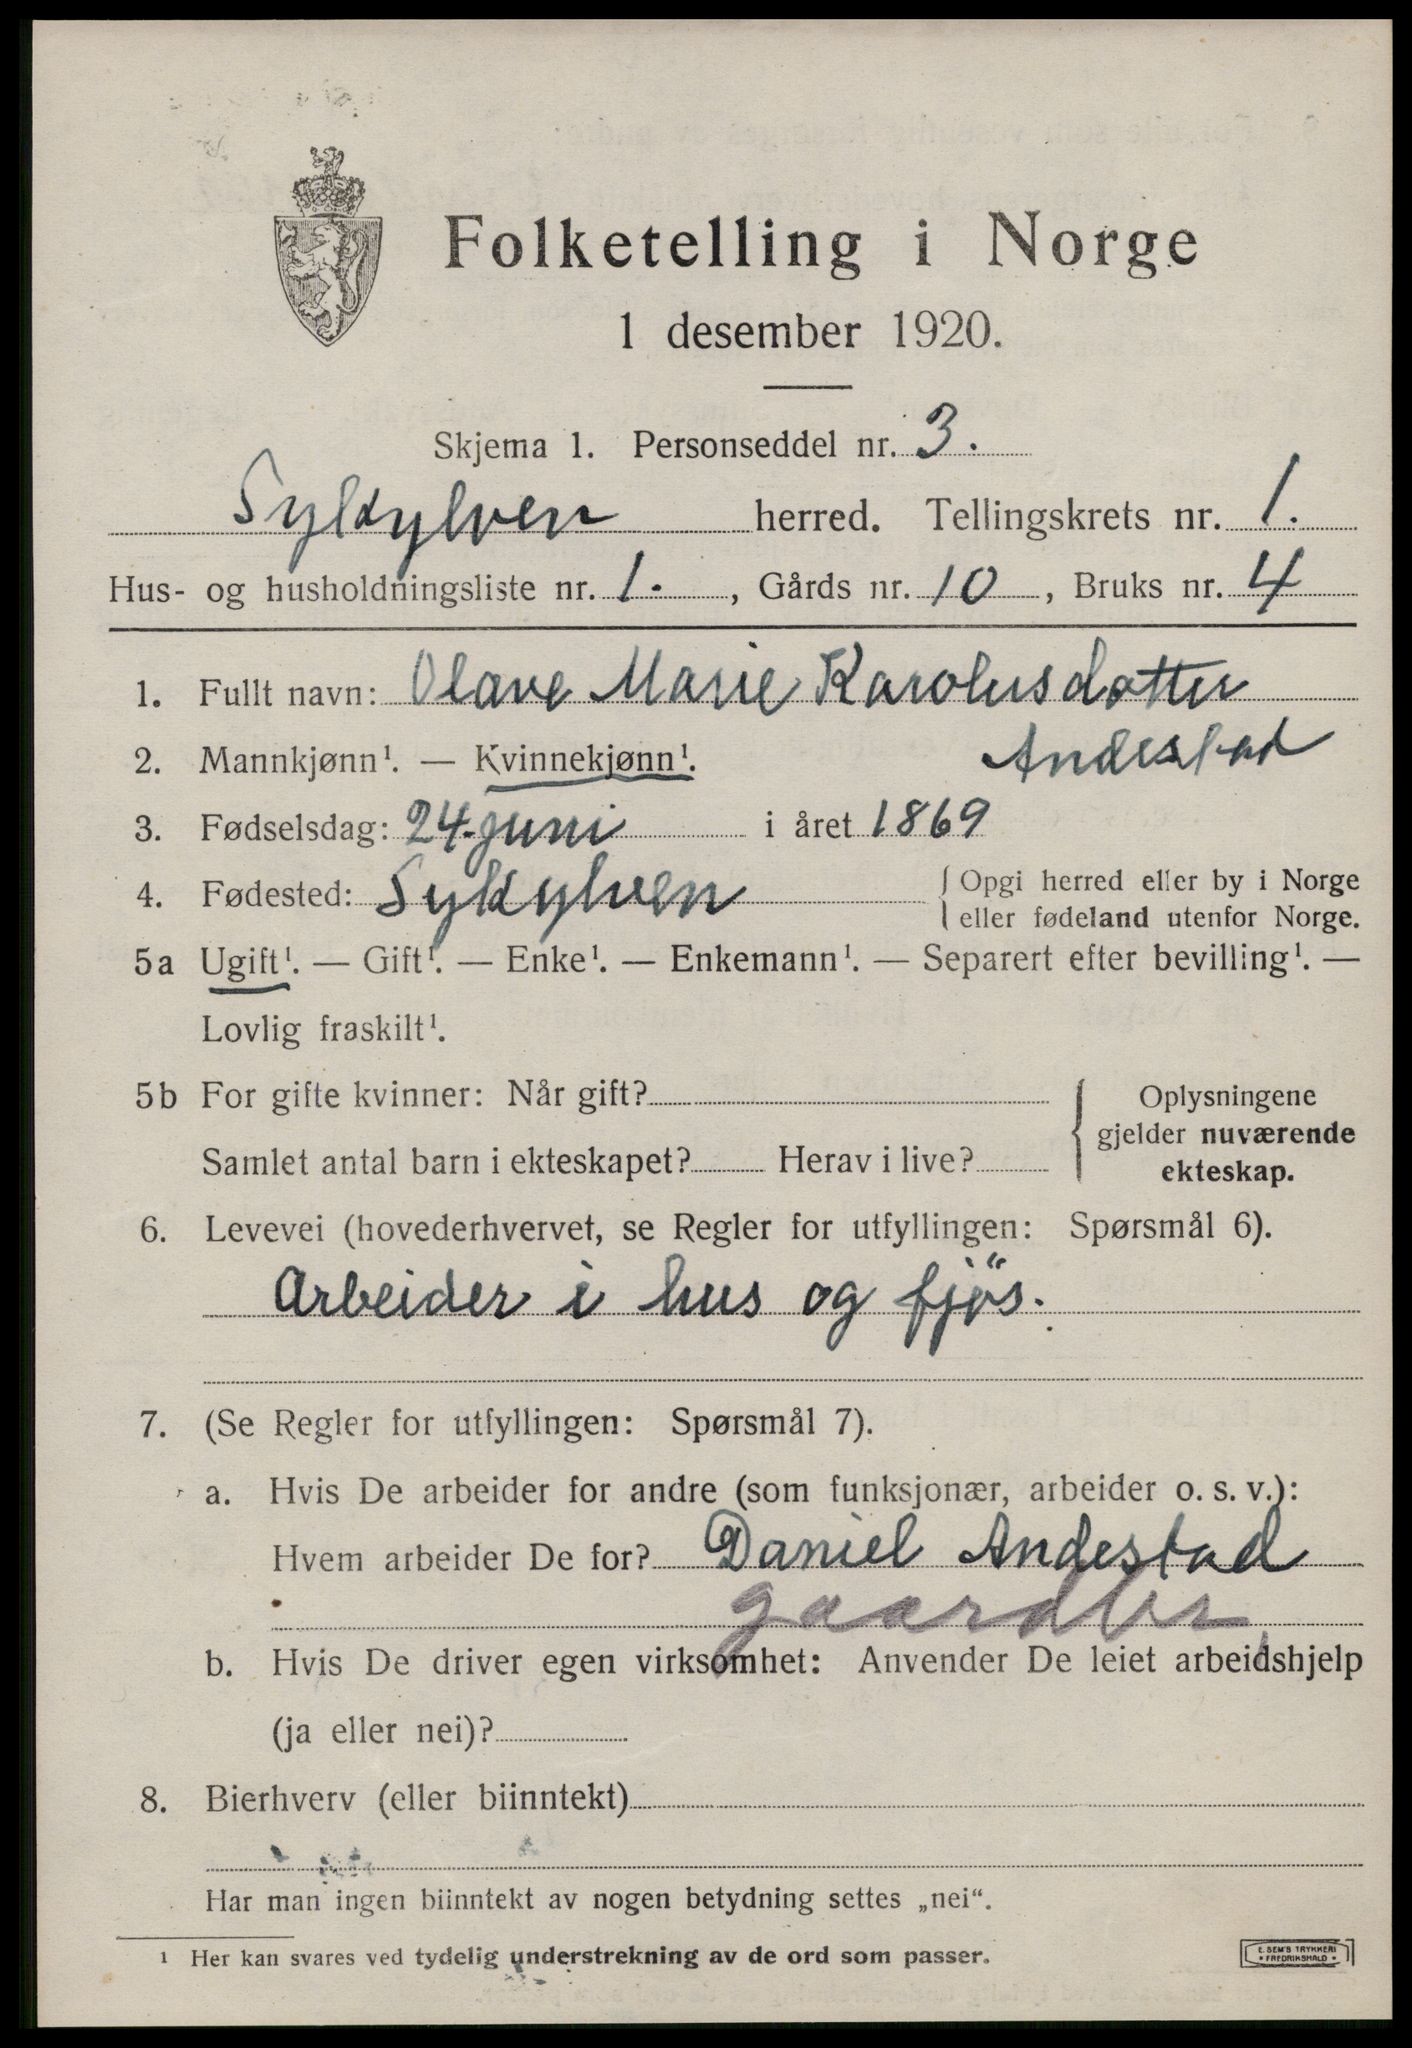 Folketelling i Norge
1 desember 1920.
Skjema 1. Personseddel nr. 3.
Sykylven herred. Tellingskrets nr. 1.
Hus- og husholdningsliste nr. 1. , Gårds nr. 10 , Bruks nr. 4
1. Fullt navn: Olave Marie Karolusdotter
Andestad
2. Mannkjønn¹. — Kvinnekjønn¹.
3. Fødselsdag: 24. juni i året 1869
4. Fødested: Sykylven { Opgi herred eller by i Norge
eller fødeland utenfor Norge.
5a Ugift¹. — Gift¹. — Enke¹. — Enkemann¹. — Separert efter bevilling¹. —
Lovlig fraskilt¹.
5b For gifte kvinner: Når gift?
Samlet antal barn i ekteskapet? Herav i live?
Oplysningene
gjelder nuværende
ekteskap.
6. Levevei (hovederhvervet, se Regler for utfyllingen: Spørsmål 6).
Arbeider i hus og fjøs.
7. (Se Regler for utfyllingen: Spørsmål 7).
a. Hvis De arbeider for andre (som funksjonær, arbeider o. s. v.):
Hvem arbeider De for? Daniel Andestad
gaardbr
b. Hvis De driver egen virksomhet: Anvender De leiet arbeidshjelp
(ja eller nei)?
8. Bierhverv (eller biinntekt)
Har man ingen biinntekt av nogen betydning settes „nei“.
¹ Her kan svares ved tydelig understrekning av de ord som passer.
E. SEM'S TRYKKERI
• FREDRIKSHALD •